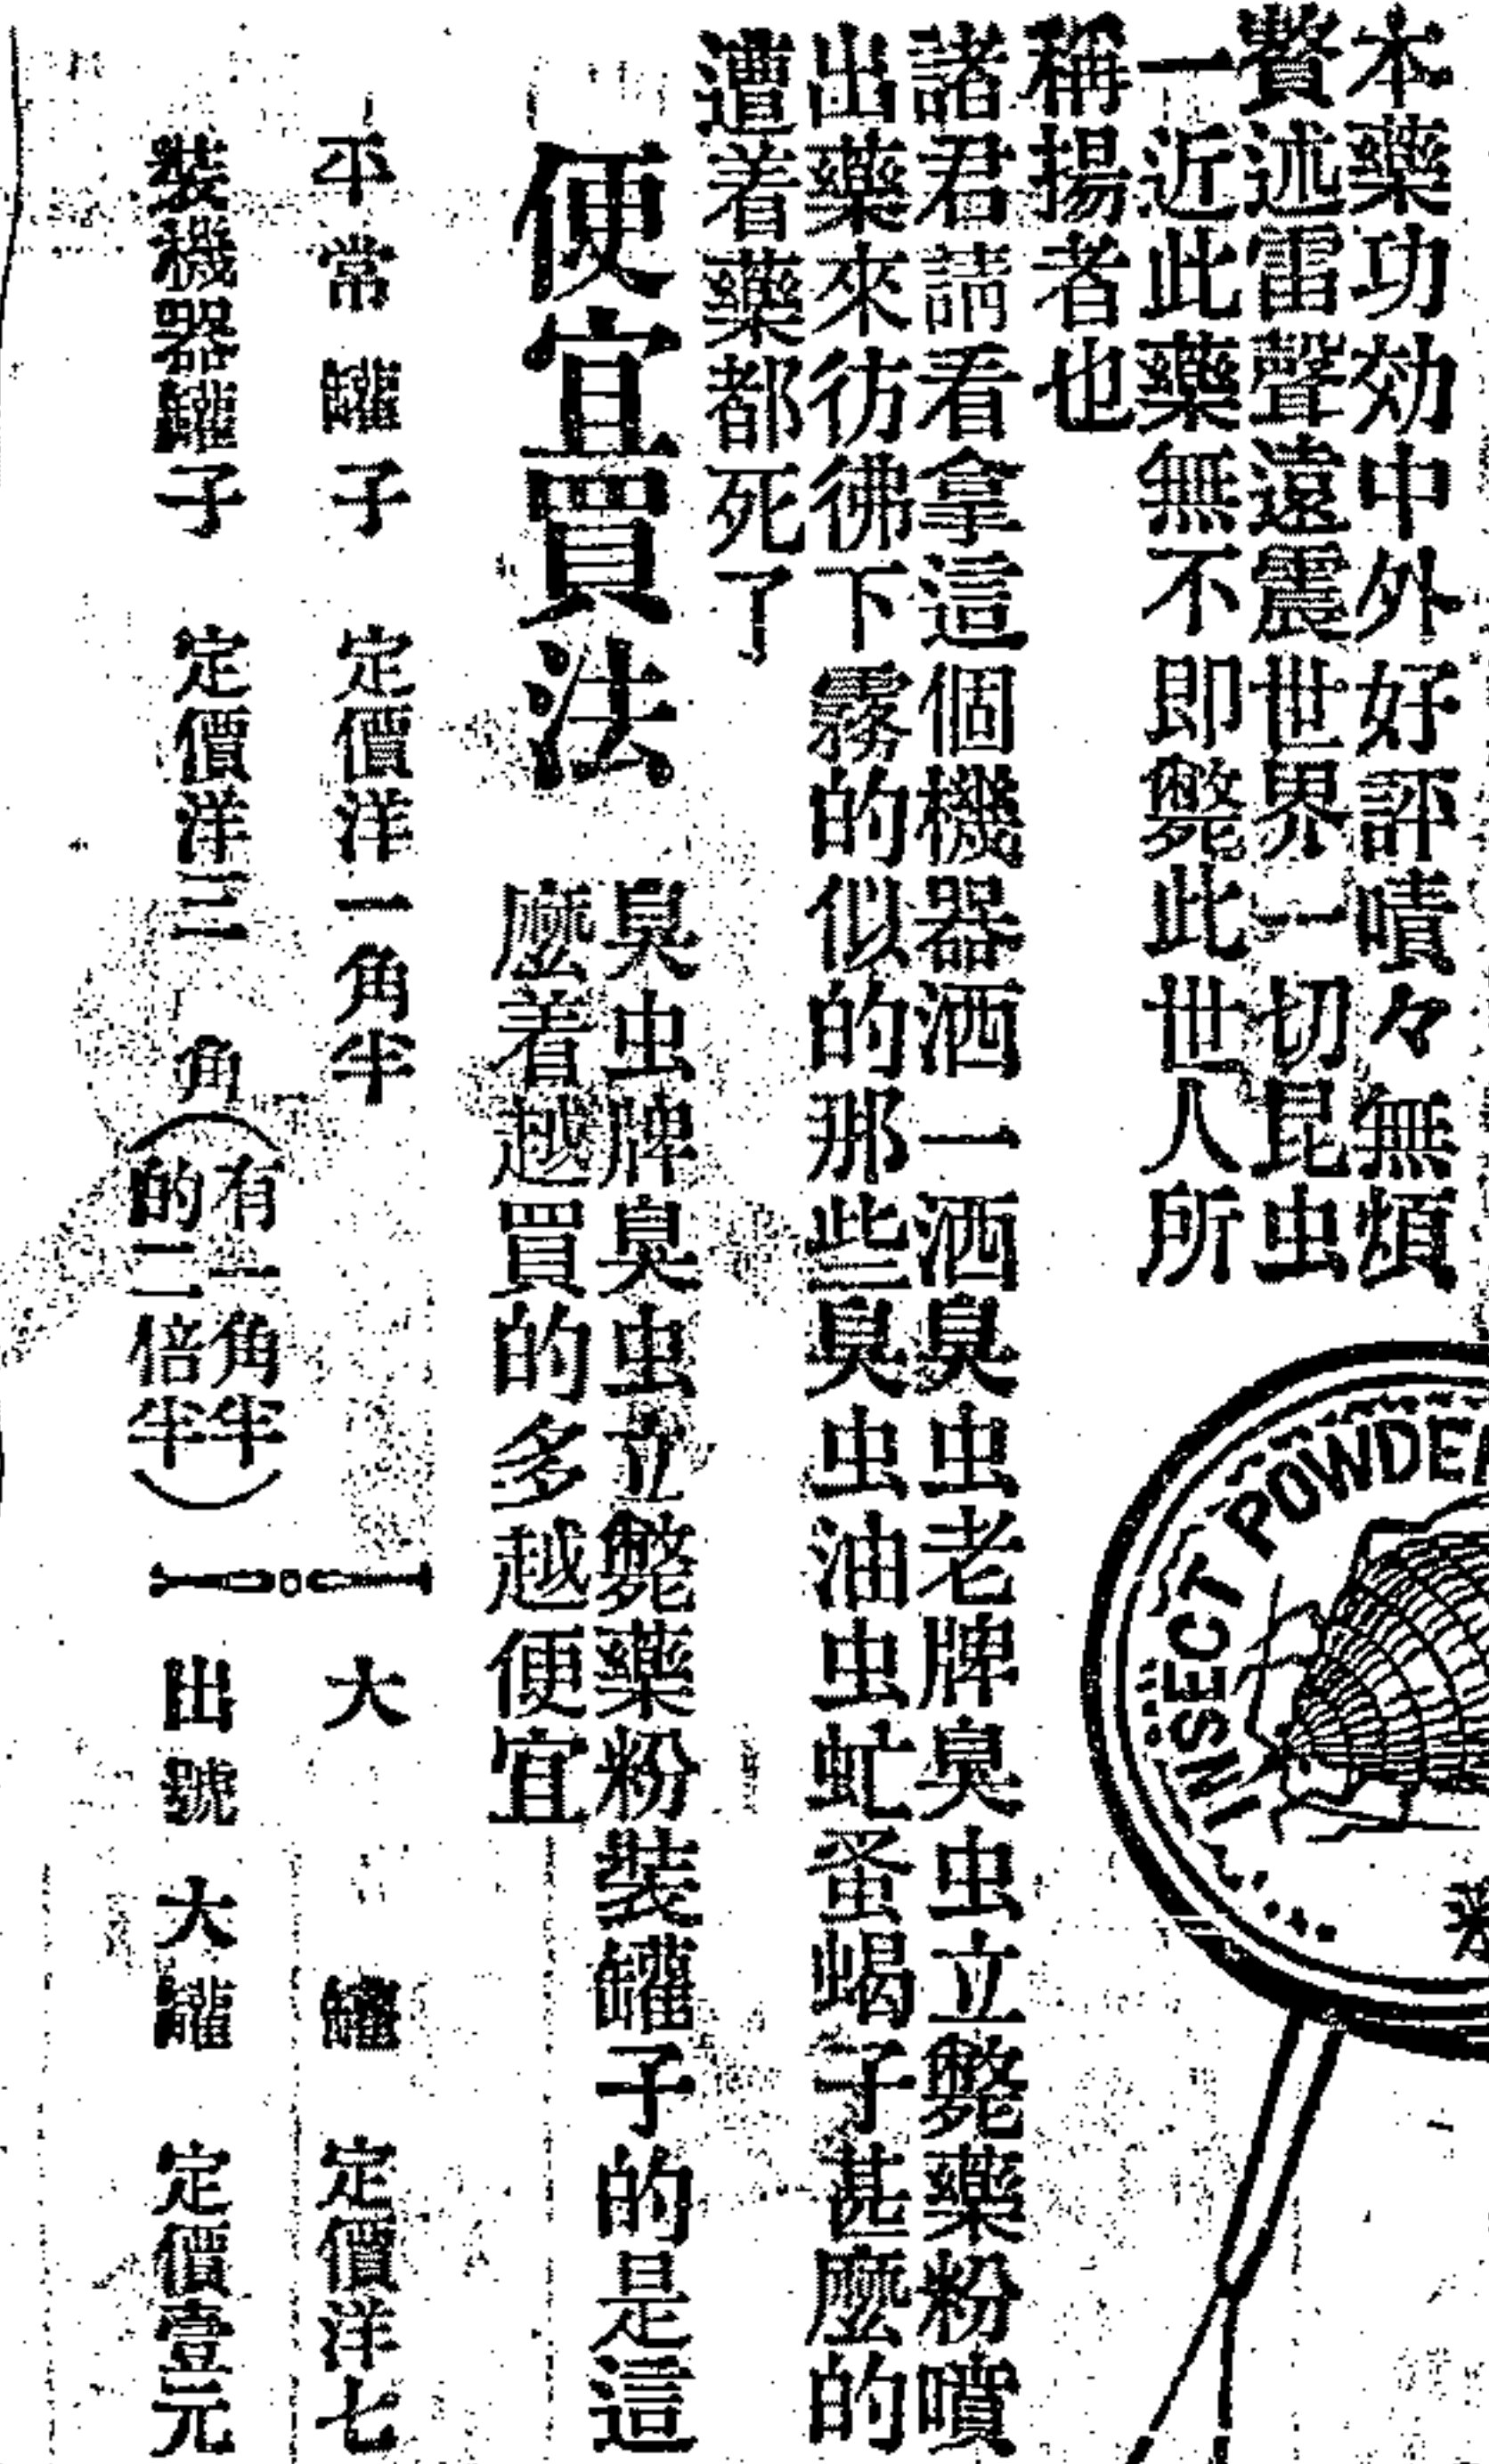 本藥功効中外好評嘖々無煩
贅述雷聲遠震世界一切昆虫
一近此藥無不即斃此世人所
稱揚者也
諸君請看拿這個機器洒一洒臭虫老牌臭虫立斃藥粉噴
出藥來彷彿下霧的似的那些臭虫油虫虻蚤蝎子甚麼的
遭着藥都死了
便宜買法
臭虫牌臭虫立斃藥粉裝罐子的是這
麼着越買的多越便宜
平常罐子 定價洋一角半
大罐 定價洋七
裝機器罐子 定價洋三角
(有一角半
的二倍半)
出號大罐 定價壹元
INSECT POWDER